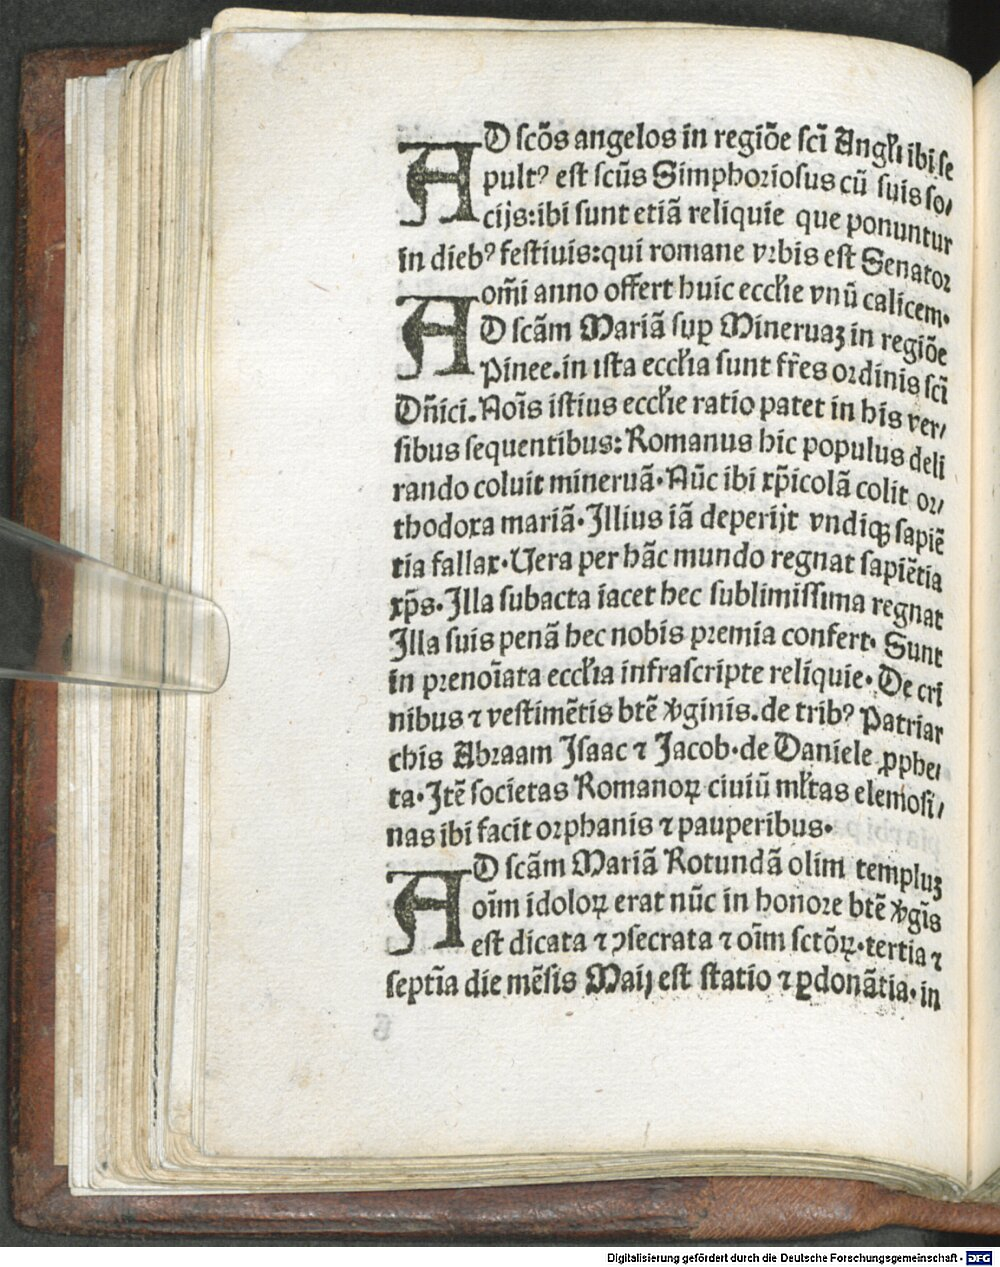 AD scōs angelos in regiōe scī Angłi ibi se
pultꝰ est scūs Simphoriosus cū suis so⸗
cijs: ibi sunt etiā reliquie que ponuntur
in diebꝰ festiuis: qui romane vrbis est Senator
om̄i anno offert huic eccłie vnū calicem.
AD scām Mariā sup̱ Mineruaꝫ in regiōe
Pinee. in ista eccłia sunt fr̄es ordinis scī
Dn̄ici. Noīs istius eccłie ratio patet in his ver⸗
sibus sequentibus: Romanus hic populus deli
rando coluit mineruā. Nūc ibi xp̄icolā colit or⸗
thodoxa mariā. Illius iā deperijt vndiqꝫ sapiē
tia fallax. Uera per hāc mundo regnat sapiētia
xp̄s. Illa subacta iacet hec sublimissima regnat
Illa suis penā hec nobis premia confert. Sunt
in prenoīata eccłia infrascripte reliquie. De cri
nibus ⁊ vestimētis btē v̓ginis. de tribꝰ Patriar
chis Abraam Isaac ⁊ Jacob. de Daniele ꝓphe⸗
ta. Itē societas Romanoꝝ ciuiū młtas elemosi⸗
nas ibi facit orphanis ⁊ pauperibus.
AD scām Mariā Rotundā olim templuꝫ
oīm idoloꝝ erat nūc in honore btē v̓gīs
est dicata ⁊ ↄsecrata ⁊ oīm sctōꝝ. tertia ⁊
septīa die mēsis Maij est statio ⁊ ꝑdonātia. in
Digitalisierung gefördert durch die Deutsche Forschungsgemeinschaft - DFG